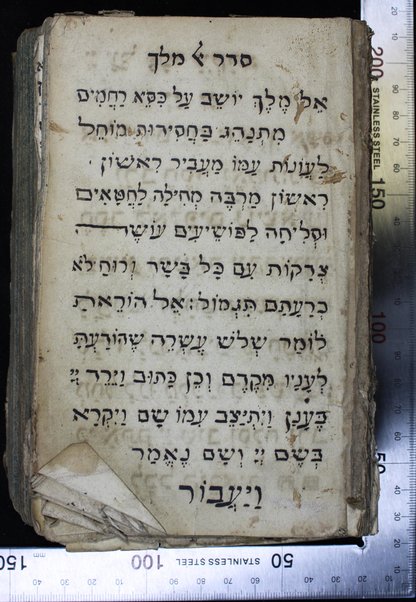 סדר אל מלך
אֵל מֶלֶךְ יוֹשֵׁב עַל כִּסֵּא רַחֲמִים
מִתְנַהֵג בַּחֲסִידוּת מוֹחֵל
לַעֲוֹנוֹת עַמּוֹ מַעֲבִיר רִאשׁוֹן
רִאשׁוֹן מַרְבֶּה מְחִילָה לַחַטָּאִים
וּסְלִיחָה לַפּוֹשְׁעִים עוֹשֶׂה
צְדָקוֹת עִם כָּל בָּשָׂר וְרוּחַ לֹא
כְרָעָתָם תִּגְמוֹל: אֵל הוֹרֵאתָ
לוֹמַר שְׁלֹשׁ עֶשְׂרֵה שֶׁהוֹדַעְתָּ
לְעָנָיו מִקֶּדֶם וְכֵן כָּתוּב וַיֵּרֶד יְיָ
בֶּעָנָן וַיִּתְיַצֵּב עִמּוֹ שָׁם וַיִּקְרָא
בְּשֵׁם יְיָ וְשָׁם נֶאֱמַר
וַיַּעֲבוֹר
200
STAINLESS STEEL
150
100
50
150
mm
100
STAINLESS STEEL
50